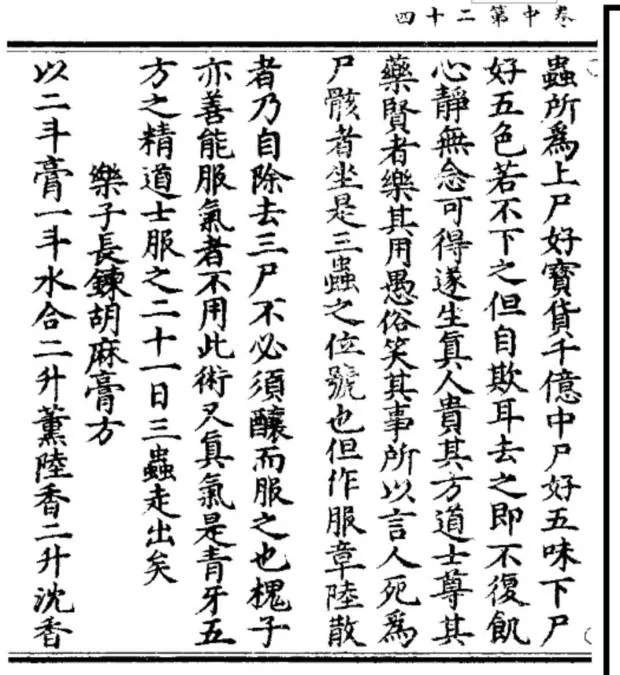 卷中第二十四
蟲所爲上尸好寶貨千億中尸好五味下尸
好五色若不下之但自欺耳去之即不復飢
心靜無念可得遂生眞人貴其方道士尊其
藥賢者樂其用愚俗笑其事所以言人死爲
尸骸者坐是三蟲之位號也但作服章陸散
者乃自除去三尸不必須釀而服之也槐子
亦善能服氣者不用此術又眞氣是青牙五
方之精道士服之二十一日三蟲走出矣
樂子長鍊胡麻膏方
以二斗膏一斗水合二升薰陸香二升沈香